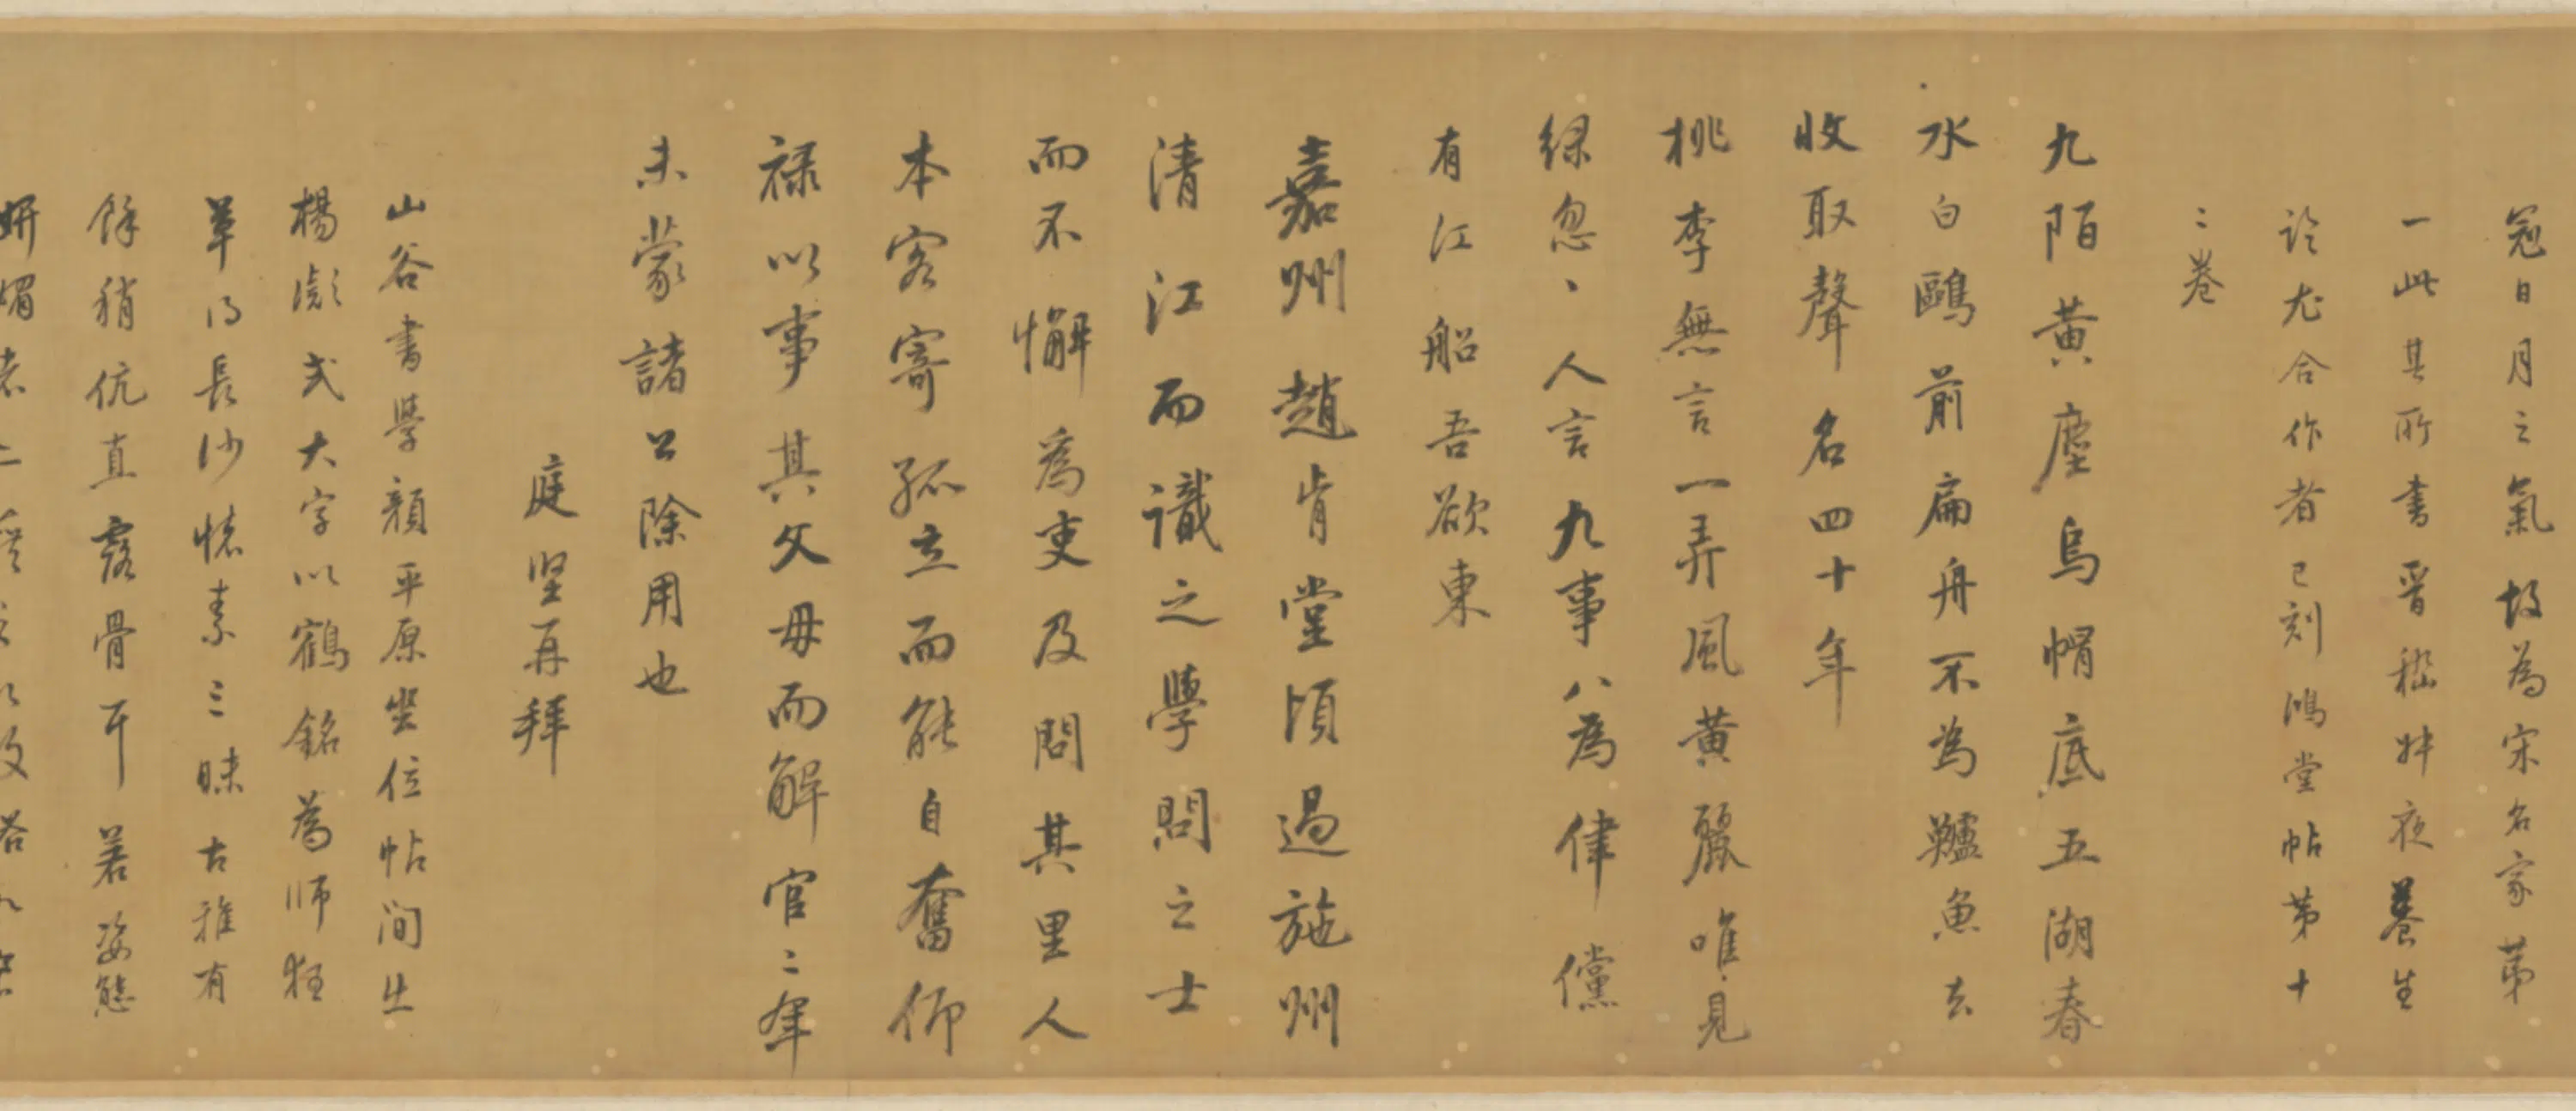 冠日月之氣故為宋名家第
一此其所書晉嵇叔夜養生
論尤合作者已刻鴻堂帖第十
二卷
九陌黃塵烏帽底五湖春
水白鷗前扁舟不為鱸魚去
收取聲名四十年
桃李無言一弄風黃鸝唯見
綠忽、人言九事八為律儻
有江船吾欲東
嘉州趙肯堂頃過施州
清江而識之學問之士
而不懈為吏及問其里人
本客寄孤立而能自奮仰
祿以事其父母而解官二年
未蒙諸公除用也
庭堅再拜
山谷書學顏平原坐位帖間出
楊凝式大字以鶴銘為師狂
草得長沙懷素三昧古雅有
餘稍伉直露骨耳若姿態
妍媚者